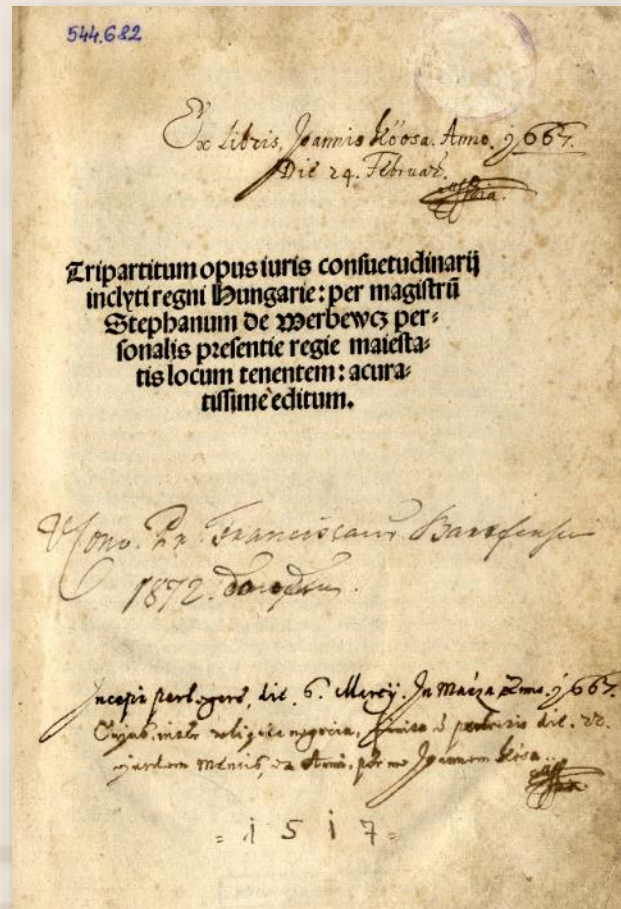 544.682
Ex Libris, Joannis Kóosa. Anno. j667.
Die 24. Februar.
Tripartitum opus iuris consuetudinarij
inclyti regni Hungarie: per magistrū
Stephanum de Werbewcz per-
sonalis presentie regie maiesta-
tis locum tenentem: acura-
tissime editum.
Conv. Franciscan
1872.
Incepi perlegere, die 6. Martij. In Anno. j667.
Cujus, inter reliqua negocia, die. 22.
ejusdem Mensis, et Anni. per me Joannem Kósa.
= i 5 i 7 =